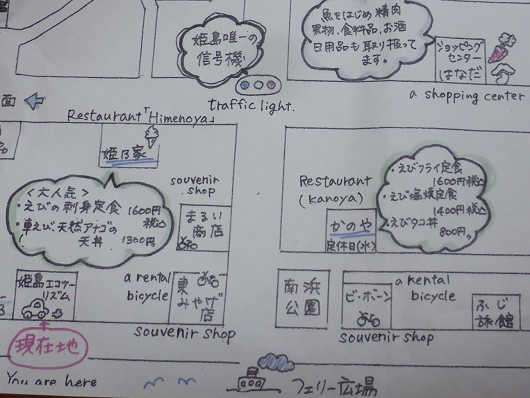 姫島唯一の
信号機
traffic light.
魚をはじめ精肉
果物、食料品、お酒
日用品も取り扱って
ます。
ショッピング
センター
はなだ
a shopping center
面
Restaurant「Himenoya」
姫乃家
<大人気>
・えびの刺身定食
1600円
税込
・車えび、天然アナゴの
天丼 1300円
souvenir
shop
まるい
商店
Restaurant
(kanoya)
かのや
定休日(水)
・えびフライ定食
1600円税込
・えび塩焼定食
1400円税込
・えびタコ丼
800円
姫島エコツー
リズム
a rental
bicycle
東
みやげ
店
souvenir shop
南浜
公園
ビ・ボーン
a rental
bicycle
souvenir shop
ふじ
旅館
現在地
You are here
フェリー広場